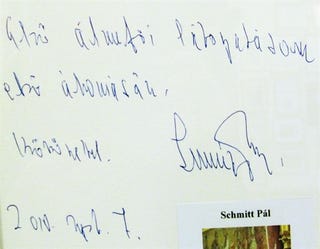 Első államfői látogatásom
első állomásán.
Köszönettel
2010. szept. 7.
Schmitt Pál